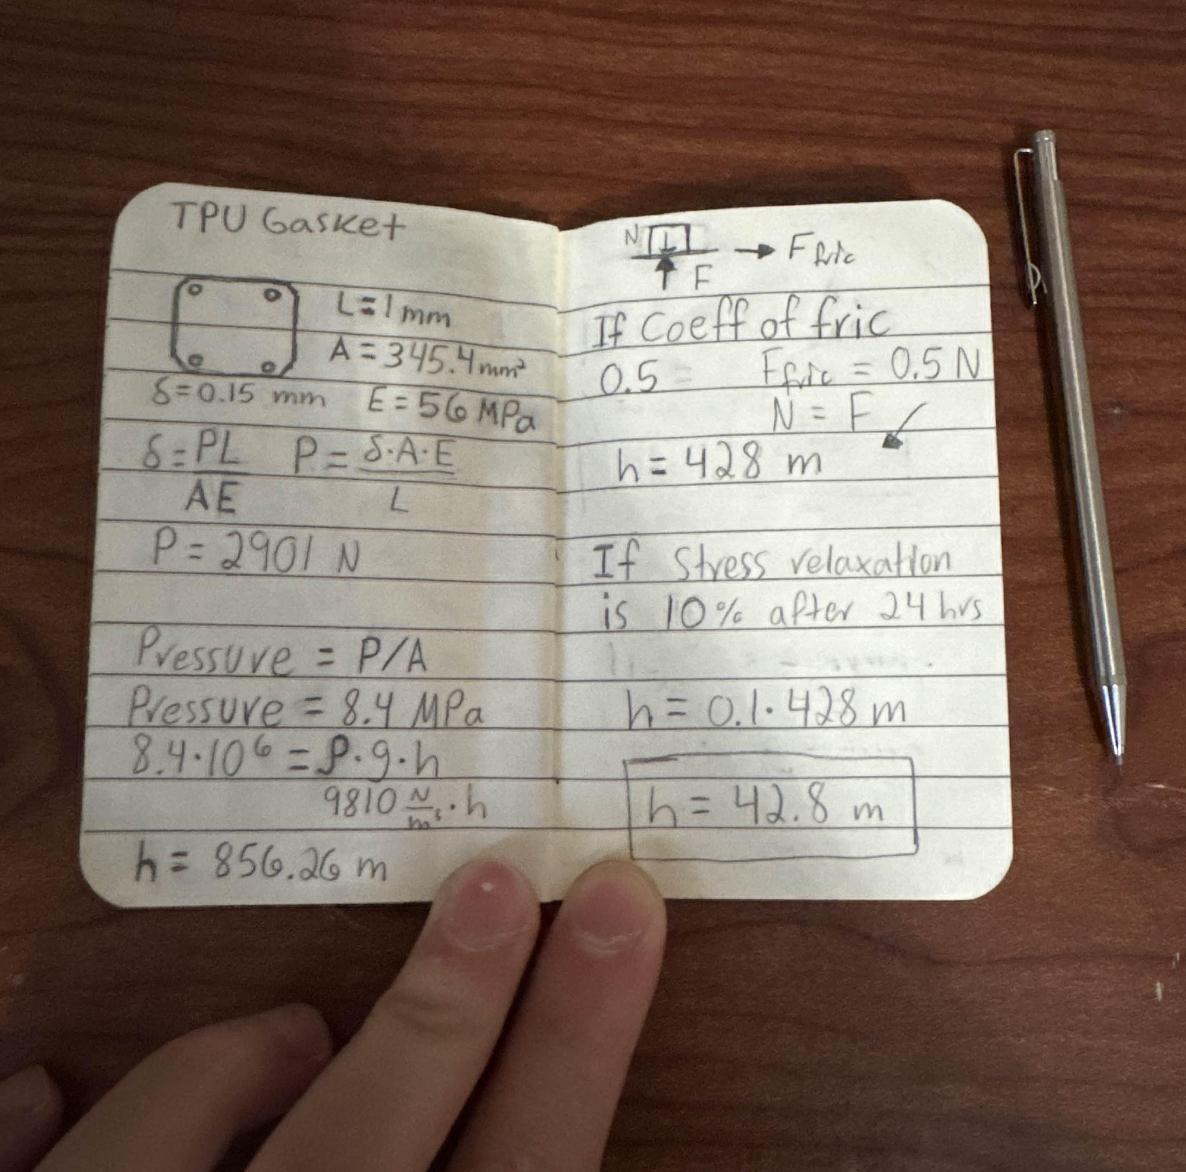 TPU Gasket
L = 1 mm
A = 345.4 mm²
δ = 0.15 mm E = 56 MPa
δ = PL/AE P = δ·A·E/L
P = 2901 N
Pressure = P/A
Pressure = 8.4 MPa
8.4·10⁶ = ρ·g·h
9810 N/m³·h
h = 856.26 m
N → F fric
↑ F
If Coeff of fric
0.5 = F fric = 0.5 N
N = F
h = 428 m
If Stress relaxation
is 10% after 24 hrs
h = 0.1·428 m
h = 42.8 m